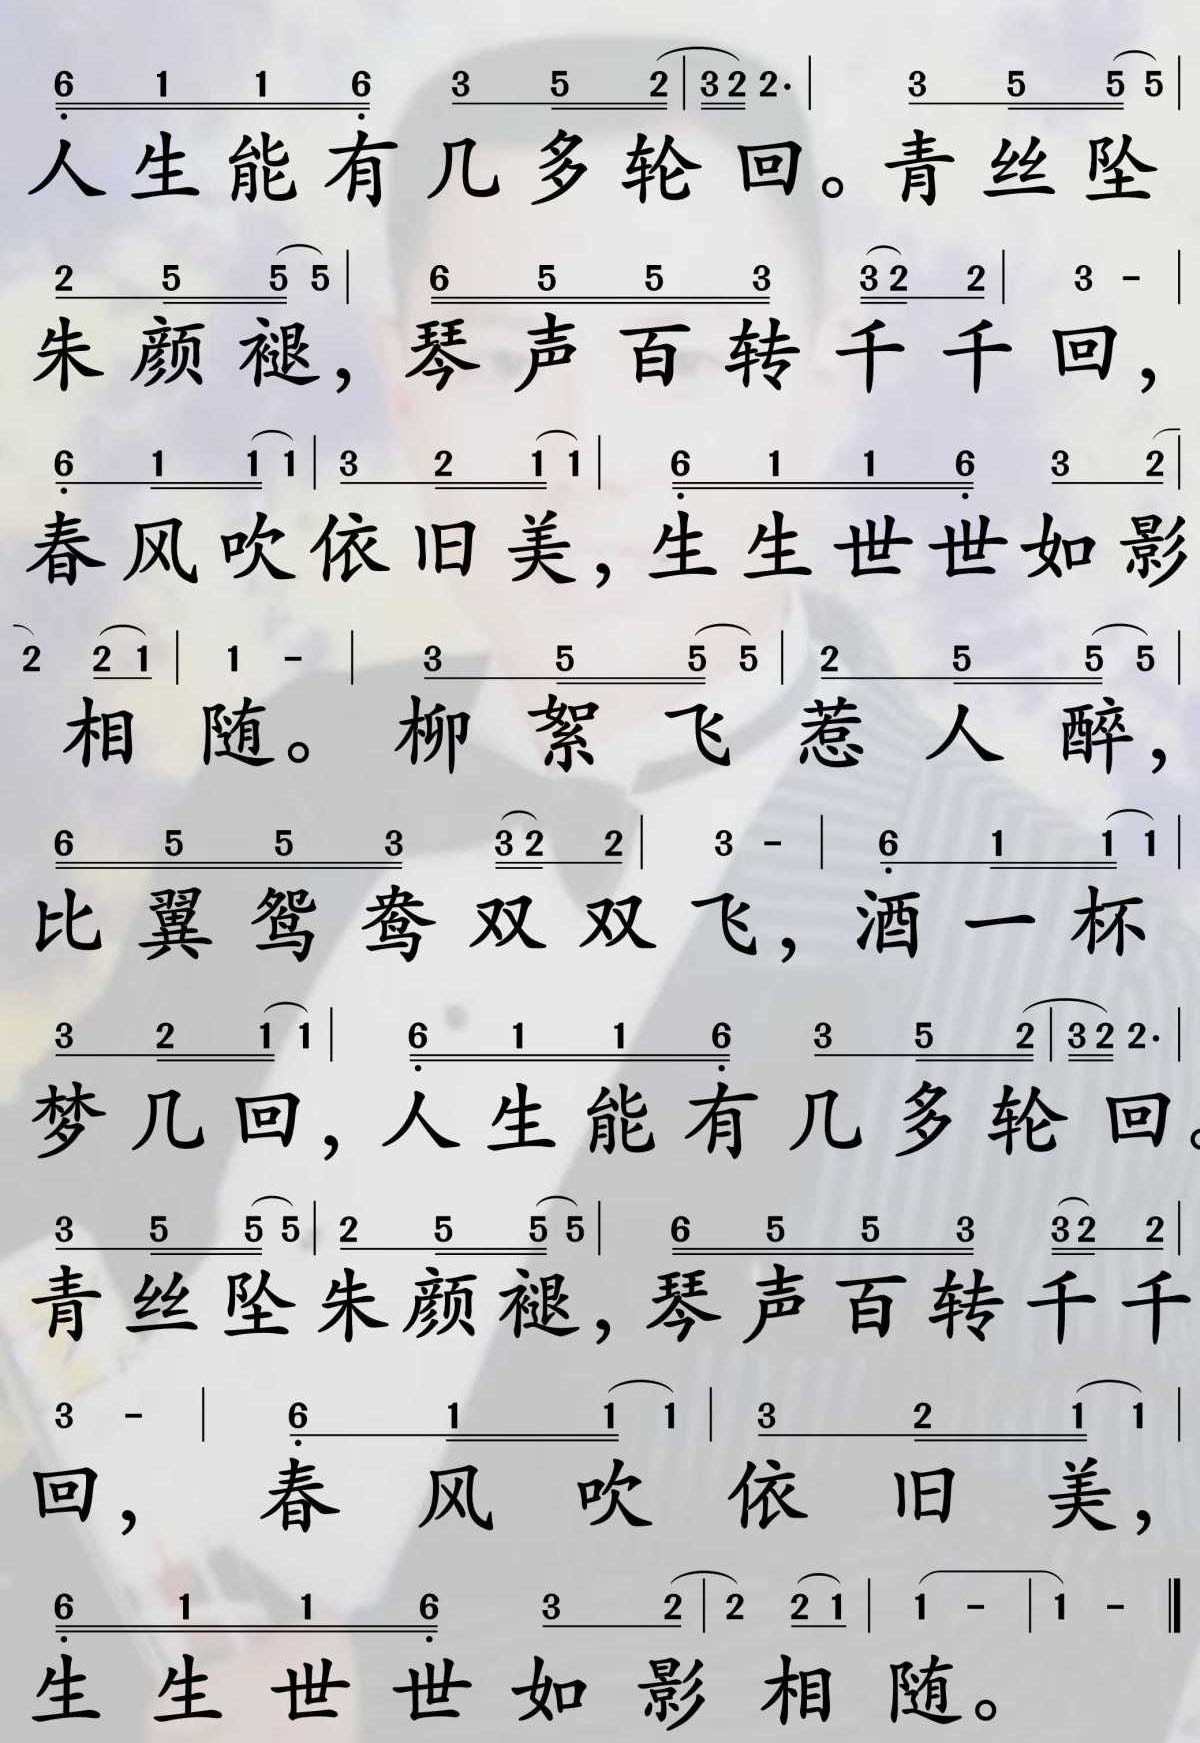 6 1 1 6 3 5 2 | 3 2 2· | 3 5 5 5 |
人生能有几多轮回。青丝坠
2 5 5 5 | 6 5 5 3 3 2 2 | 3 - |
朱颜褪，琴声百转千千回，
6 1 1 1 | 3 2 1 1 | 6 1 1 6 3 2 |
春风吹依旧美，生生世世如影
2 2 1 | 1 - | 3 5 5 5 | 2 5 5 5 |
相随。柳絮飞惹人醉，
6 5 5 3 3 2 2 | 3 - | 6 1 1 1 |
比翼鸳鸯双双飞，酒一杯
3 2 1 1 | 6 1 1 6 3 5 2 | 3 2 2· |
梦几回，人生能有几多轮回。
3 5 5 5 | 2 5 5 5 | 6 5 5 3 3 2 2 |
青丝坠朱颜褪，琴声百转千千
3 - | 6 1 1 1 | 3 2 1 1 |
回，春风吹依旧美，
6 1 1 6 3 2 | 2 2 1 | 1 - | 1 - ‖
生生世世如影相随。